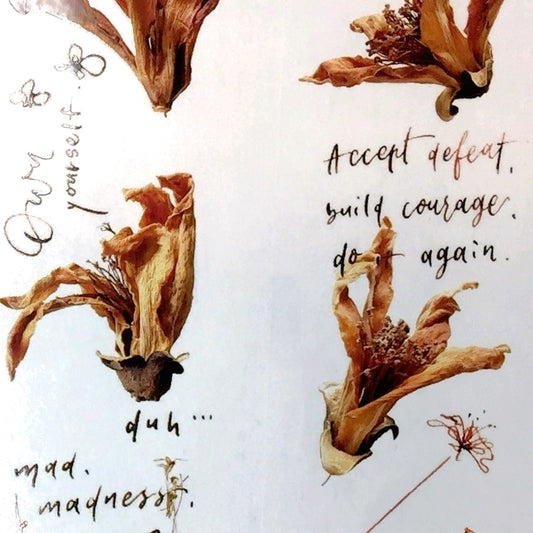 Own
yourself.
Accept defeat,
build courage.
do it again.
duh...
mad.
madness.